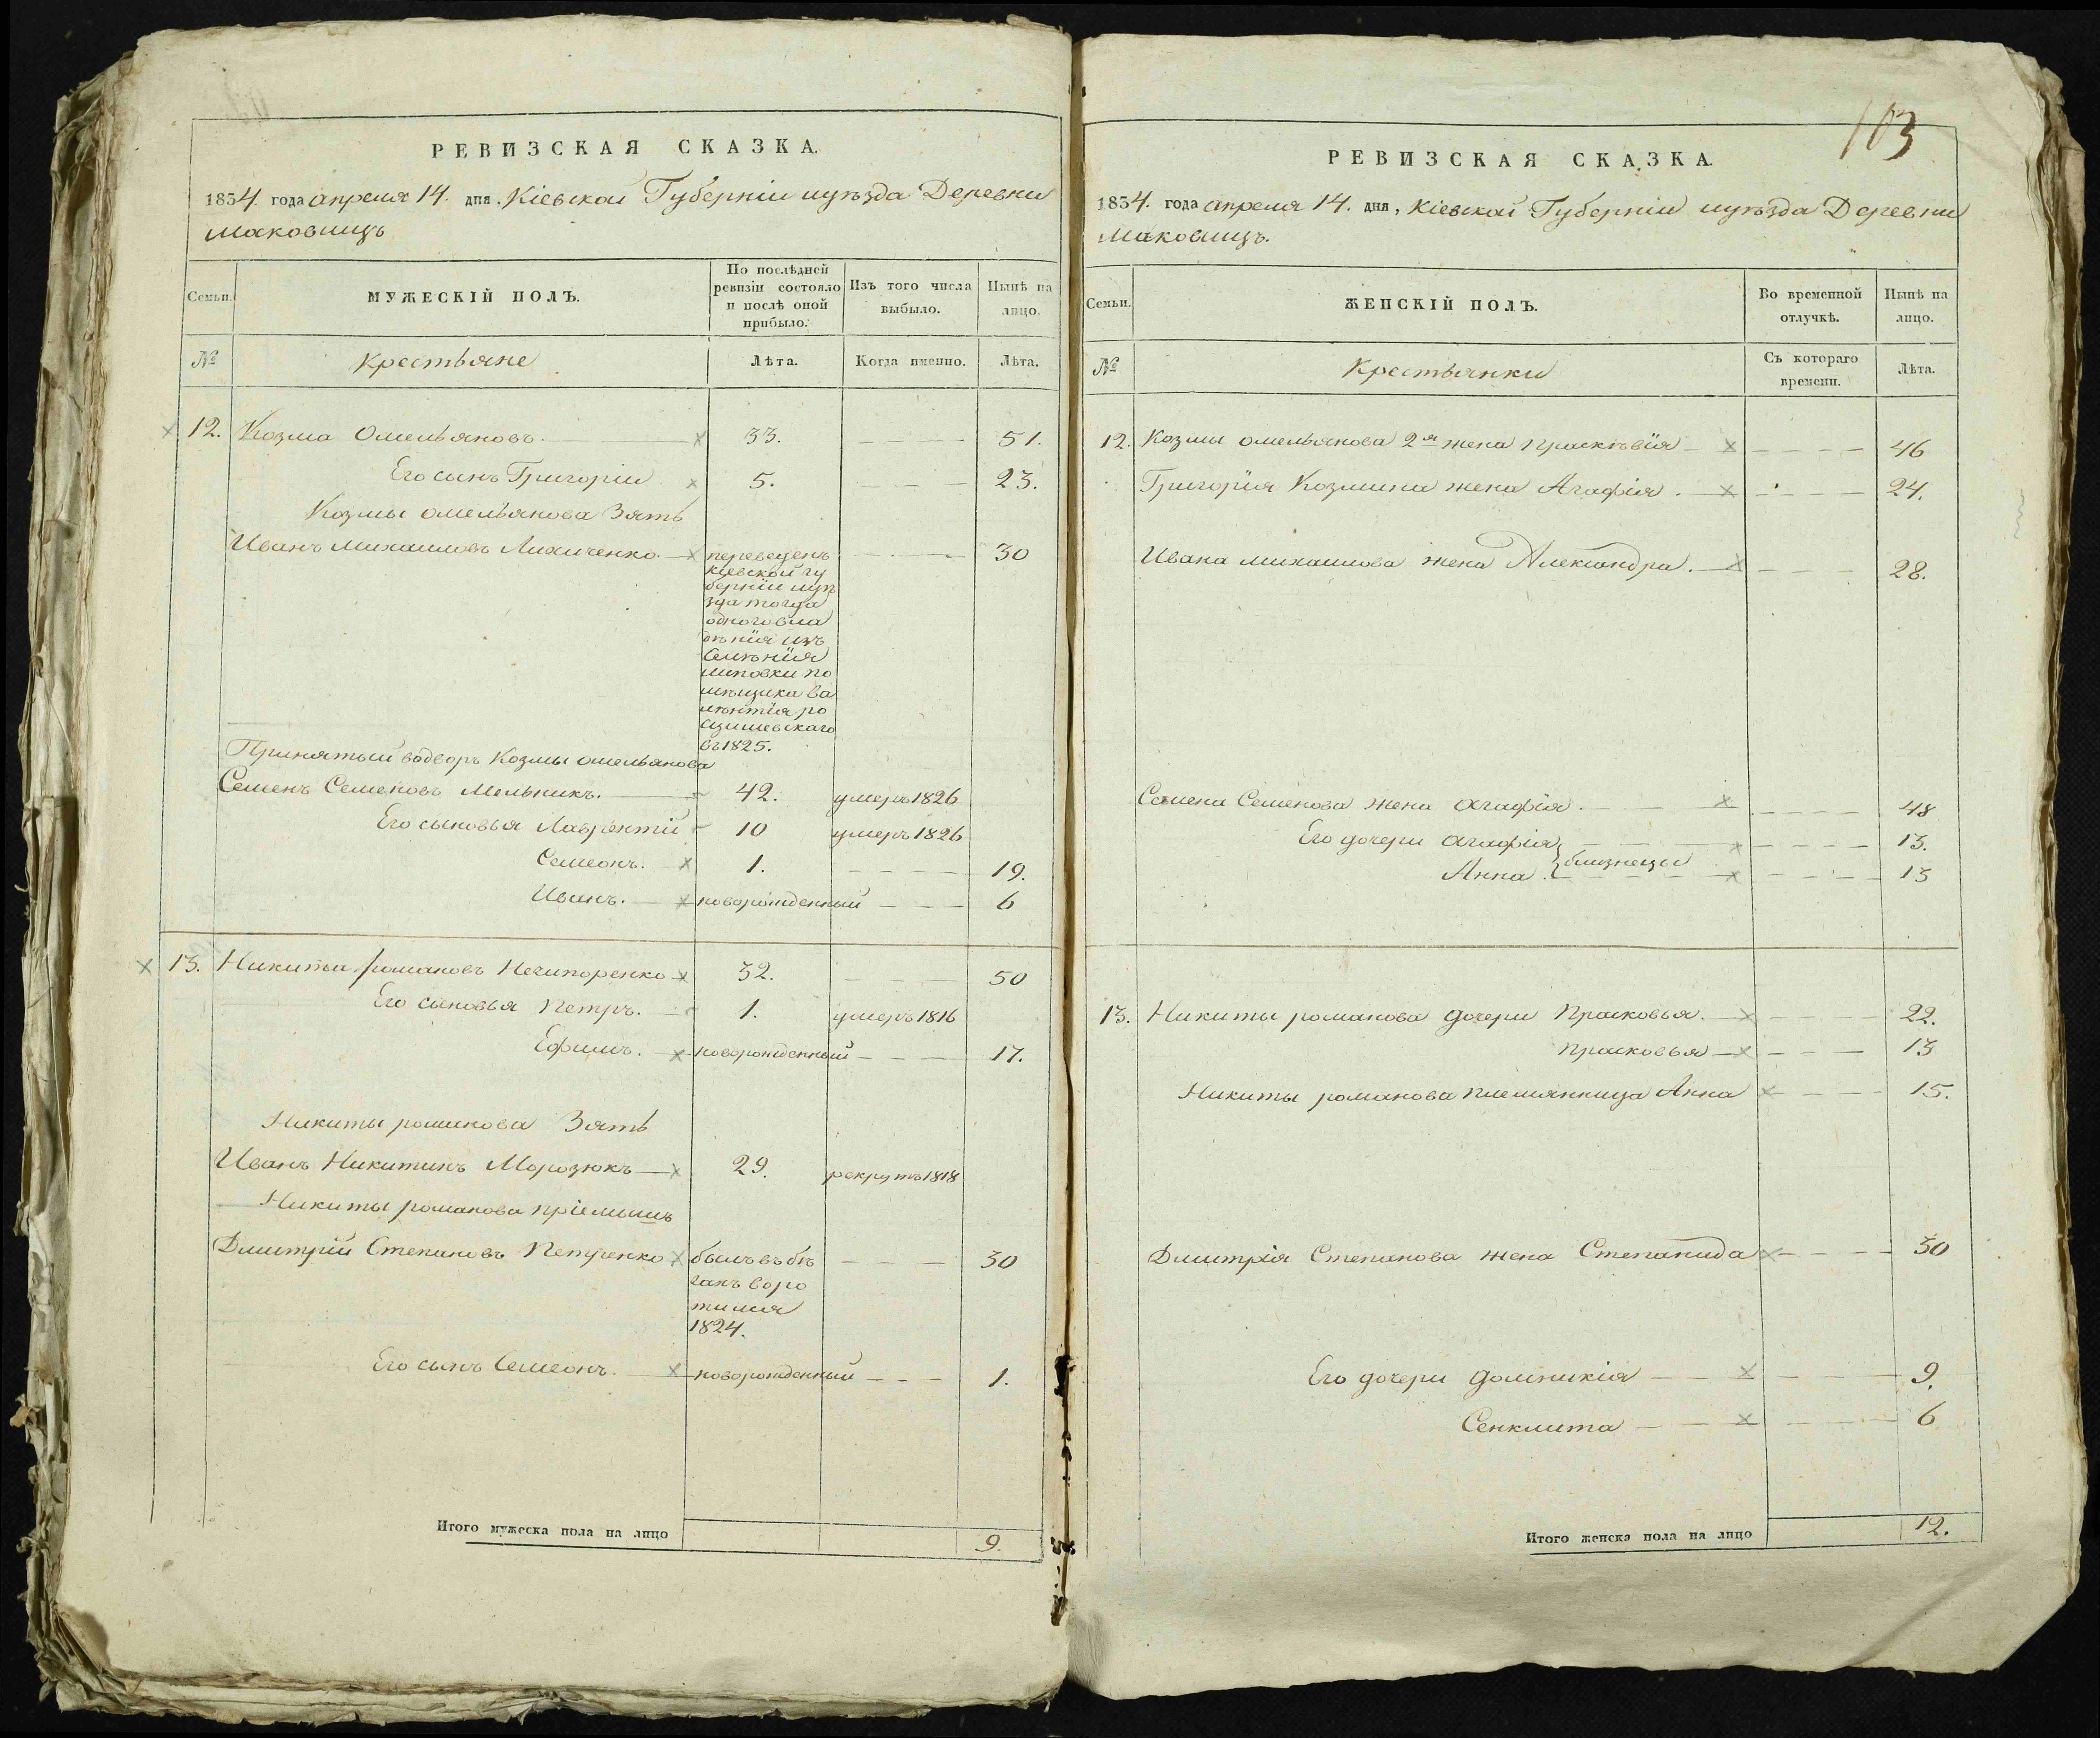 РЕВИЗСКАЯ СКАЗКА.
1834 года апреля 14. дня. Кіевской Губерніи и уѣзда Деревни
Маковищъ
Семьи.
МУЖЕСКІЙ ПОЛЪ.
По послѣдней
ревизіи состояло
и послѣ оной
прибыло.
Изъ того числа
выбыло.
Нынѣ на
лицо.
№
Крестьяне
Лѣта.
Когда именно.
Лѣта.
12. Козма Омельяновъ. 33. 51.
Его сынъ Григорій 5. 23.
Козмы Омельянова Зять
Иванъ Михаиловъ 30
переведенъ
Кіевской гу
берніи и уѣ
зда тогда
одного вла
дѣнія изъ
Селѣнія
Липовки по
мѣщика Ва
лѣнтія ро
въ 1825.
Принятый водворъ Козмы Омельянова
Семенъ Семеновъ Мельникъ. 42. умеръ 1826
Его сыновья Лаврентій 10 умеръ 1826
Семеонъ. 1. 19.
Иванъ. новорожденный 6
13. Никита романовъ Нечипоренко 32. 50
Его сыновья Петръ. 1. умеръ 1816
Ефимъ. новорожденный 17.
Никиты романова Зять
Иванъ Никитинъ Морозюкъ 29. рекрутъ 1818
Никиты романова пріемышъ
Дмитрій Степановъ Петренко 30
былъ въ бѣ
гахъ воро
тился
1824.
Его сынъ Семеонъ. новорожденный 1.
Итого мужеска пола на лицо 9.
103
РЕВИЗСКАЯ СКАЗКА.
1834. года апреля 14. дня, Кіевской Губерніи и уѣзда Деревни
Маковищъ.
Семьи.
ЖЕНСКІЙ ПОЛЪ.
Во временной
отлучкѣ.
Нынѣ на
лицо.
№
Крестьянки
Съ котораго
времени.
Лѣта.
12. Козмы Омельянова 2я жена Праскѣвія 46
Григорія Козмина жена Агафія. 24.
Ивана Михаилова жена Александра. 28.
Семена Семенова жена Агафія. 48
Его дочери Агафія 13.
близнецы
Анна. 13
13. Никиты романова дочери Прасковья. 22.
Прасковья 13
Никиты романова племянница Анна 15.
Дмитрія Степанова жена Степанида 30
Его дочери Домникія 9.
Сенклита 6
Итого женска пола на лицо 12.